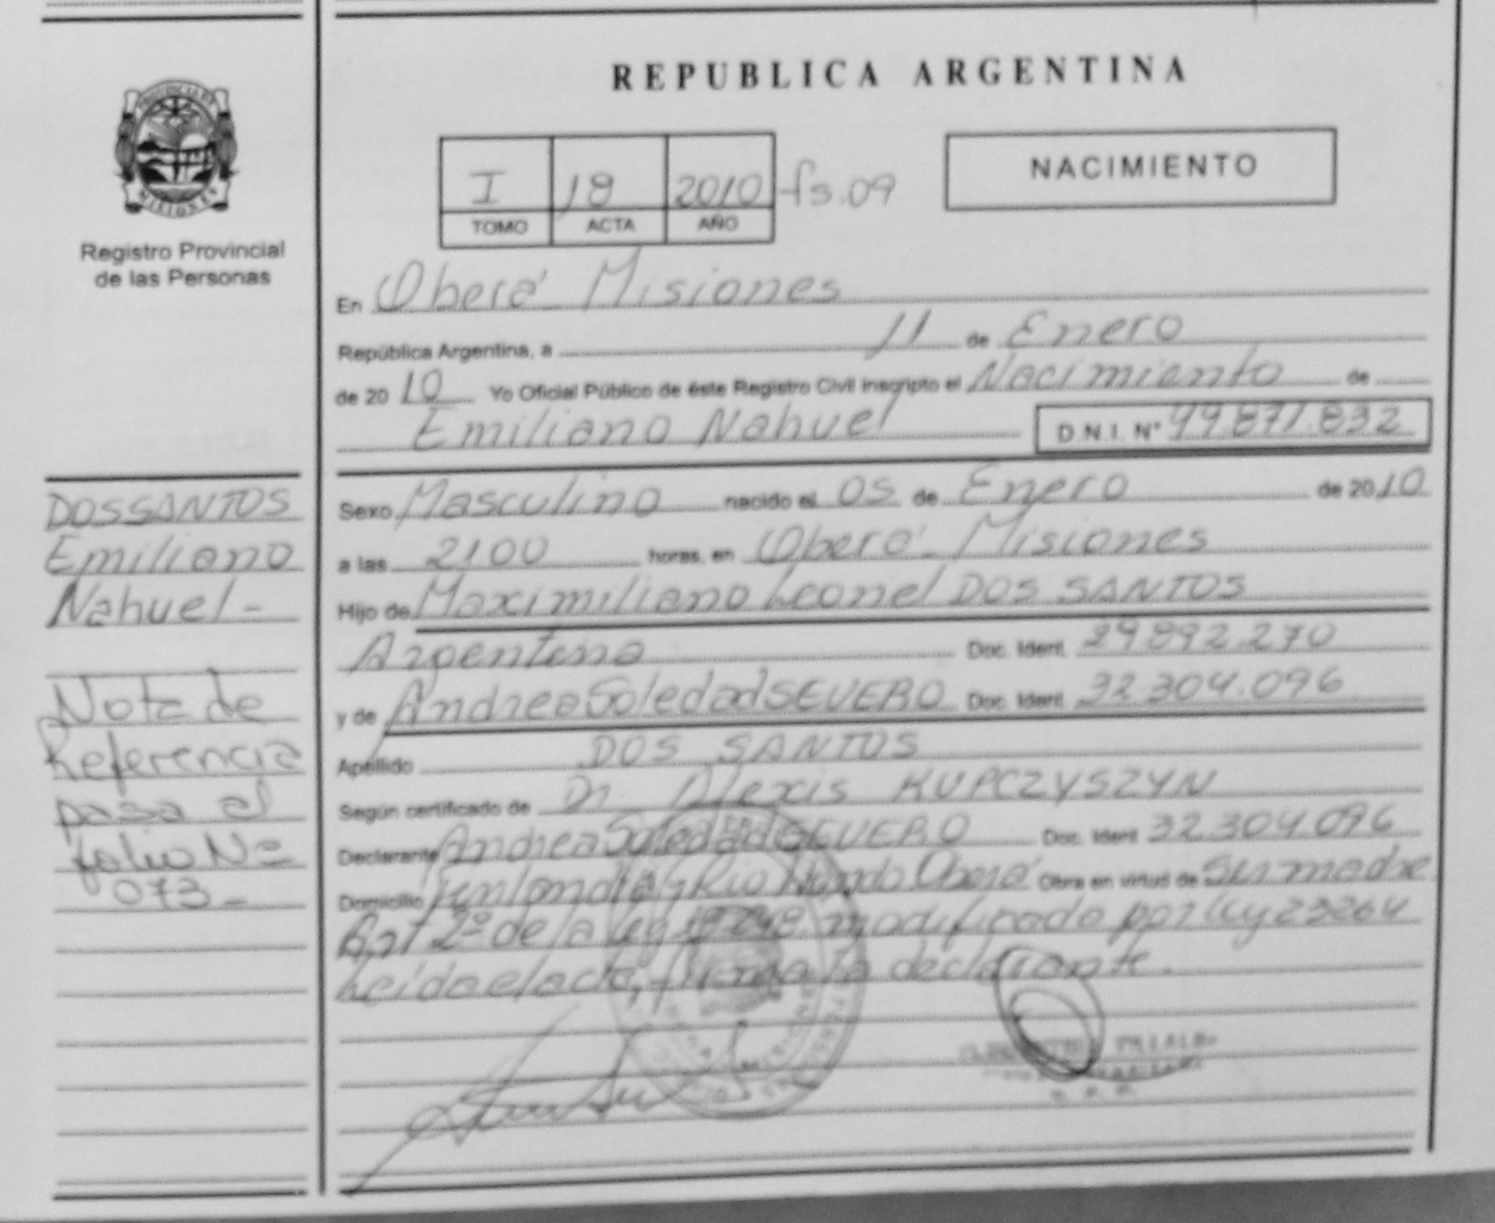 REPUBLICA ARGENTINA
PROVINCIA DE
MISIONES
Registro Provincial
de las Personas
I 18 2010 fs.09
TOMO ACTA AÑO
NACIMIENTO
En Oberá Misiones
República Argentina, a 11 de Enero
de 2010 Yo Oficial Público de éste Registro Civil inscripto el Nacimiento de
Emiliano Nahuel D.N.I. N° 49.871.832
Sexo Masculino nacido el 05 de Enero de 2010
a las 2100 horas, en Oberá - Misiones
Hijo de Maximiliano Leonel DOS SANTOS
Argentino Doc. Ident. 29.892.270
y de Andrea Soledad SEVERO Doc. Ident. 32.304.096
Apellido DOS SANTOS
Según certificado de Dr. Alexis KUPCZYSZYN
Declarante Andrea Soledad SEVERO Doc. Ident. 32.304.096
Domicilio y Rio Oberá Obra en virtud de ser madre
Art 2º de la Ley modificado por Ley 23264
Leido el acta, firma la declarante.
DOS SANTOS
Emiliano
Nahuel -
Nota de
Referencia
pasa al
folio Nº
073 -